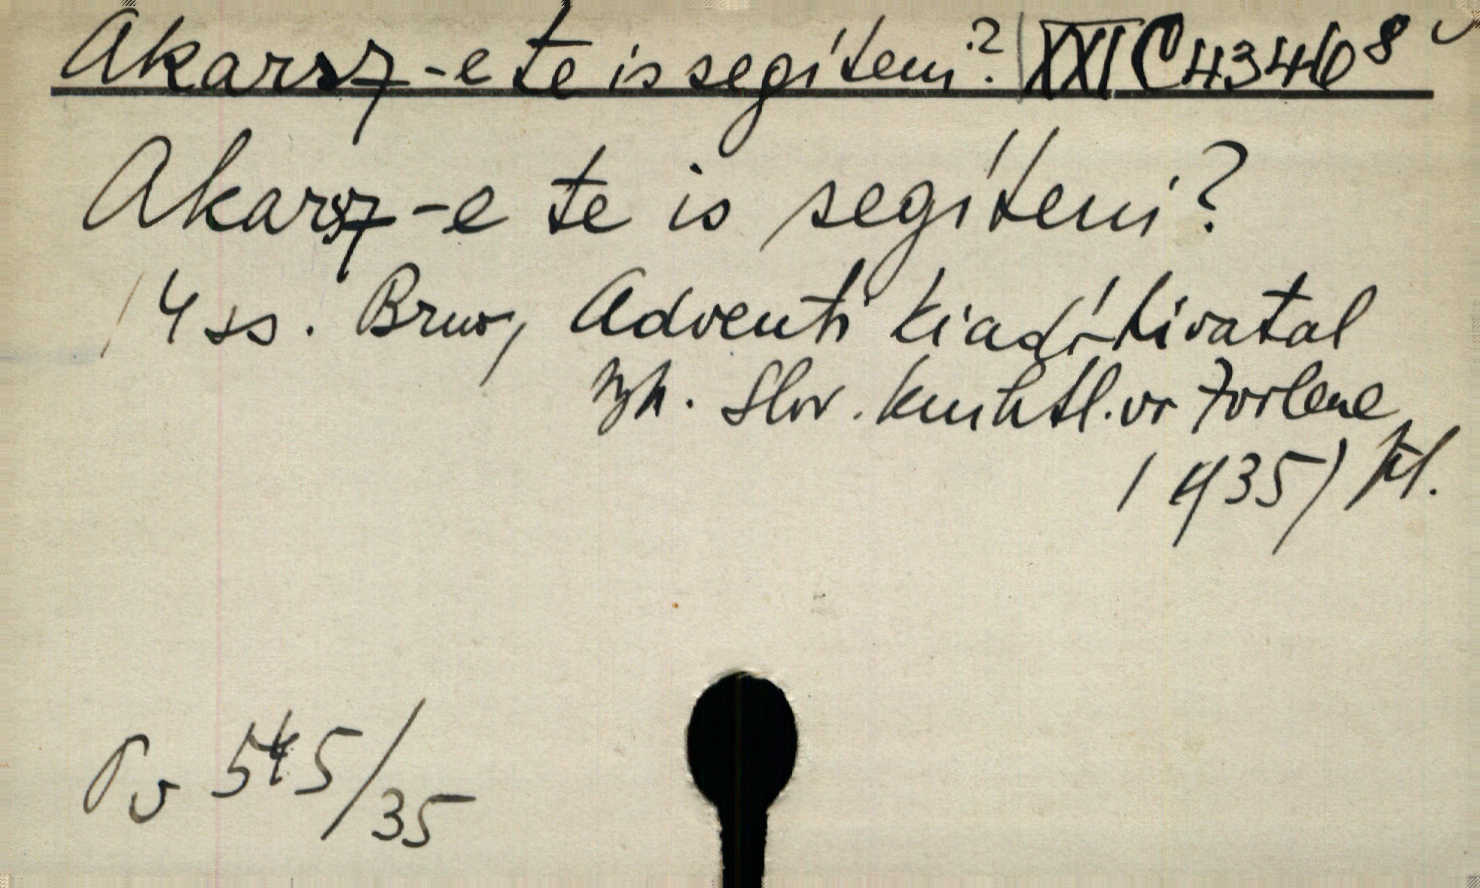 Akarsz-e te is segíteni? XXI C 4346 8
Akarsz-e te is segíteni?
/4 ss. Brno, Adventi kiadóhivatal
Typ. Slov. kníhtl. vo Zvolene
/1935/
545/35